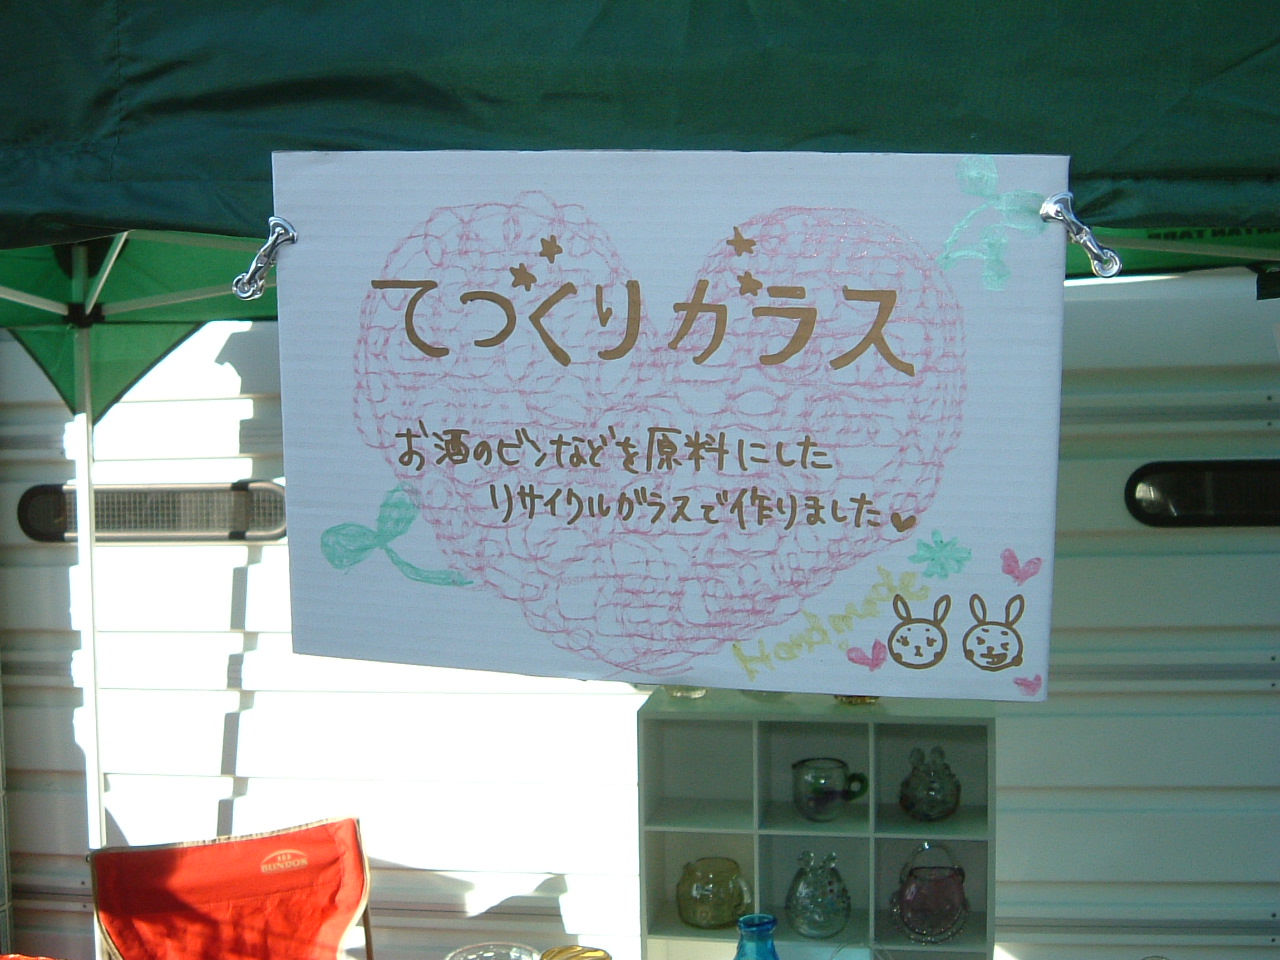 てづくりガラス
お酒のビンなどを原料にした
リサイクルガラスで作りました
Handmade
BUNDOK